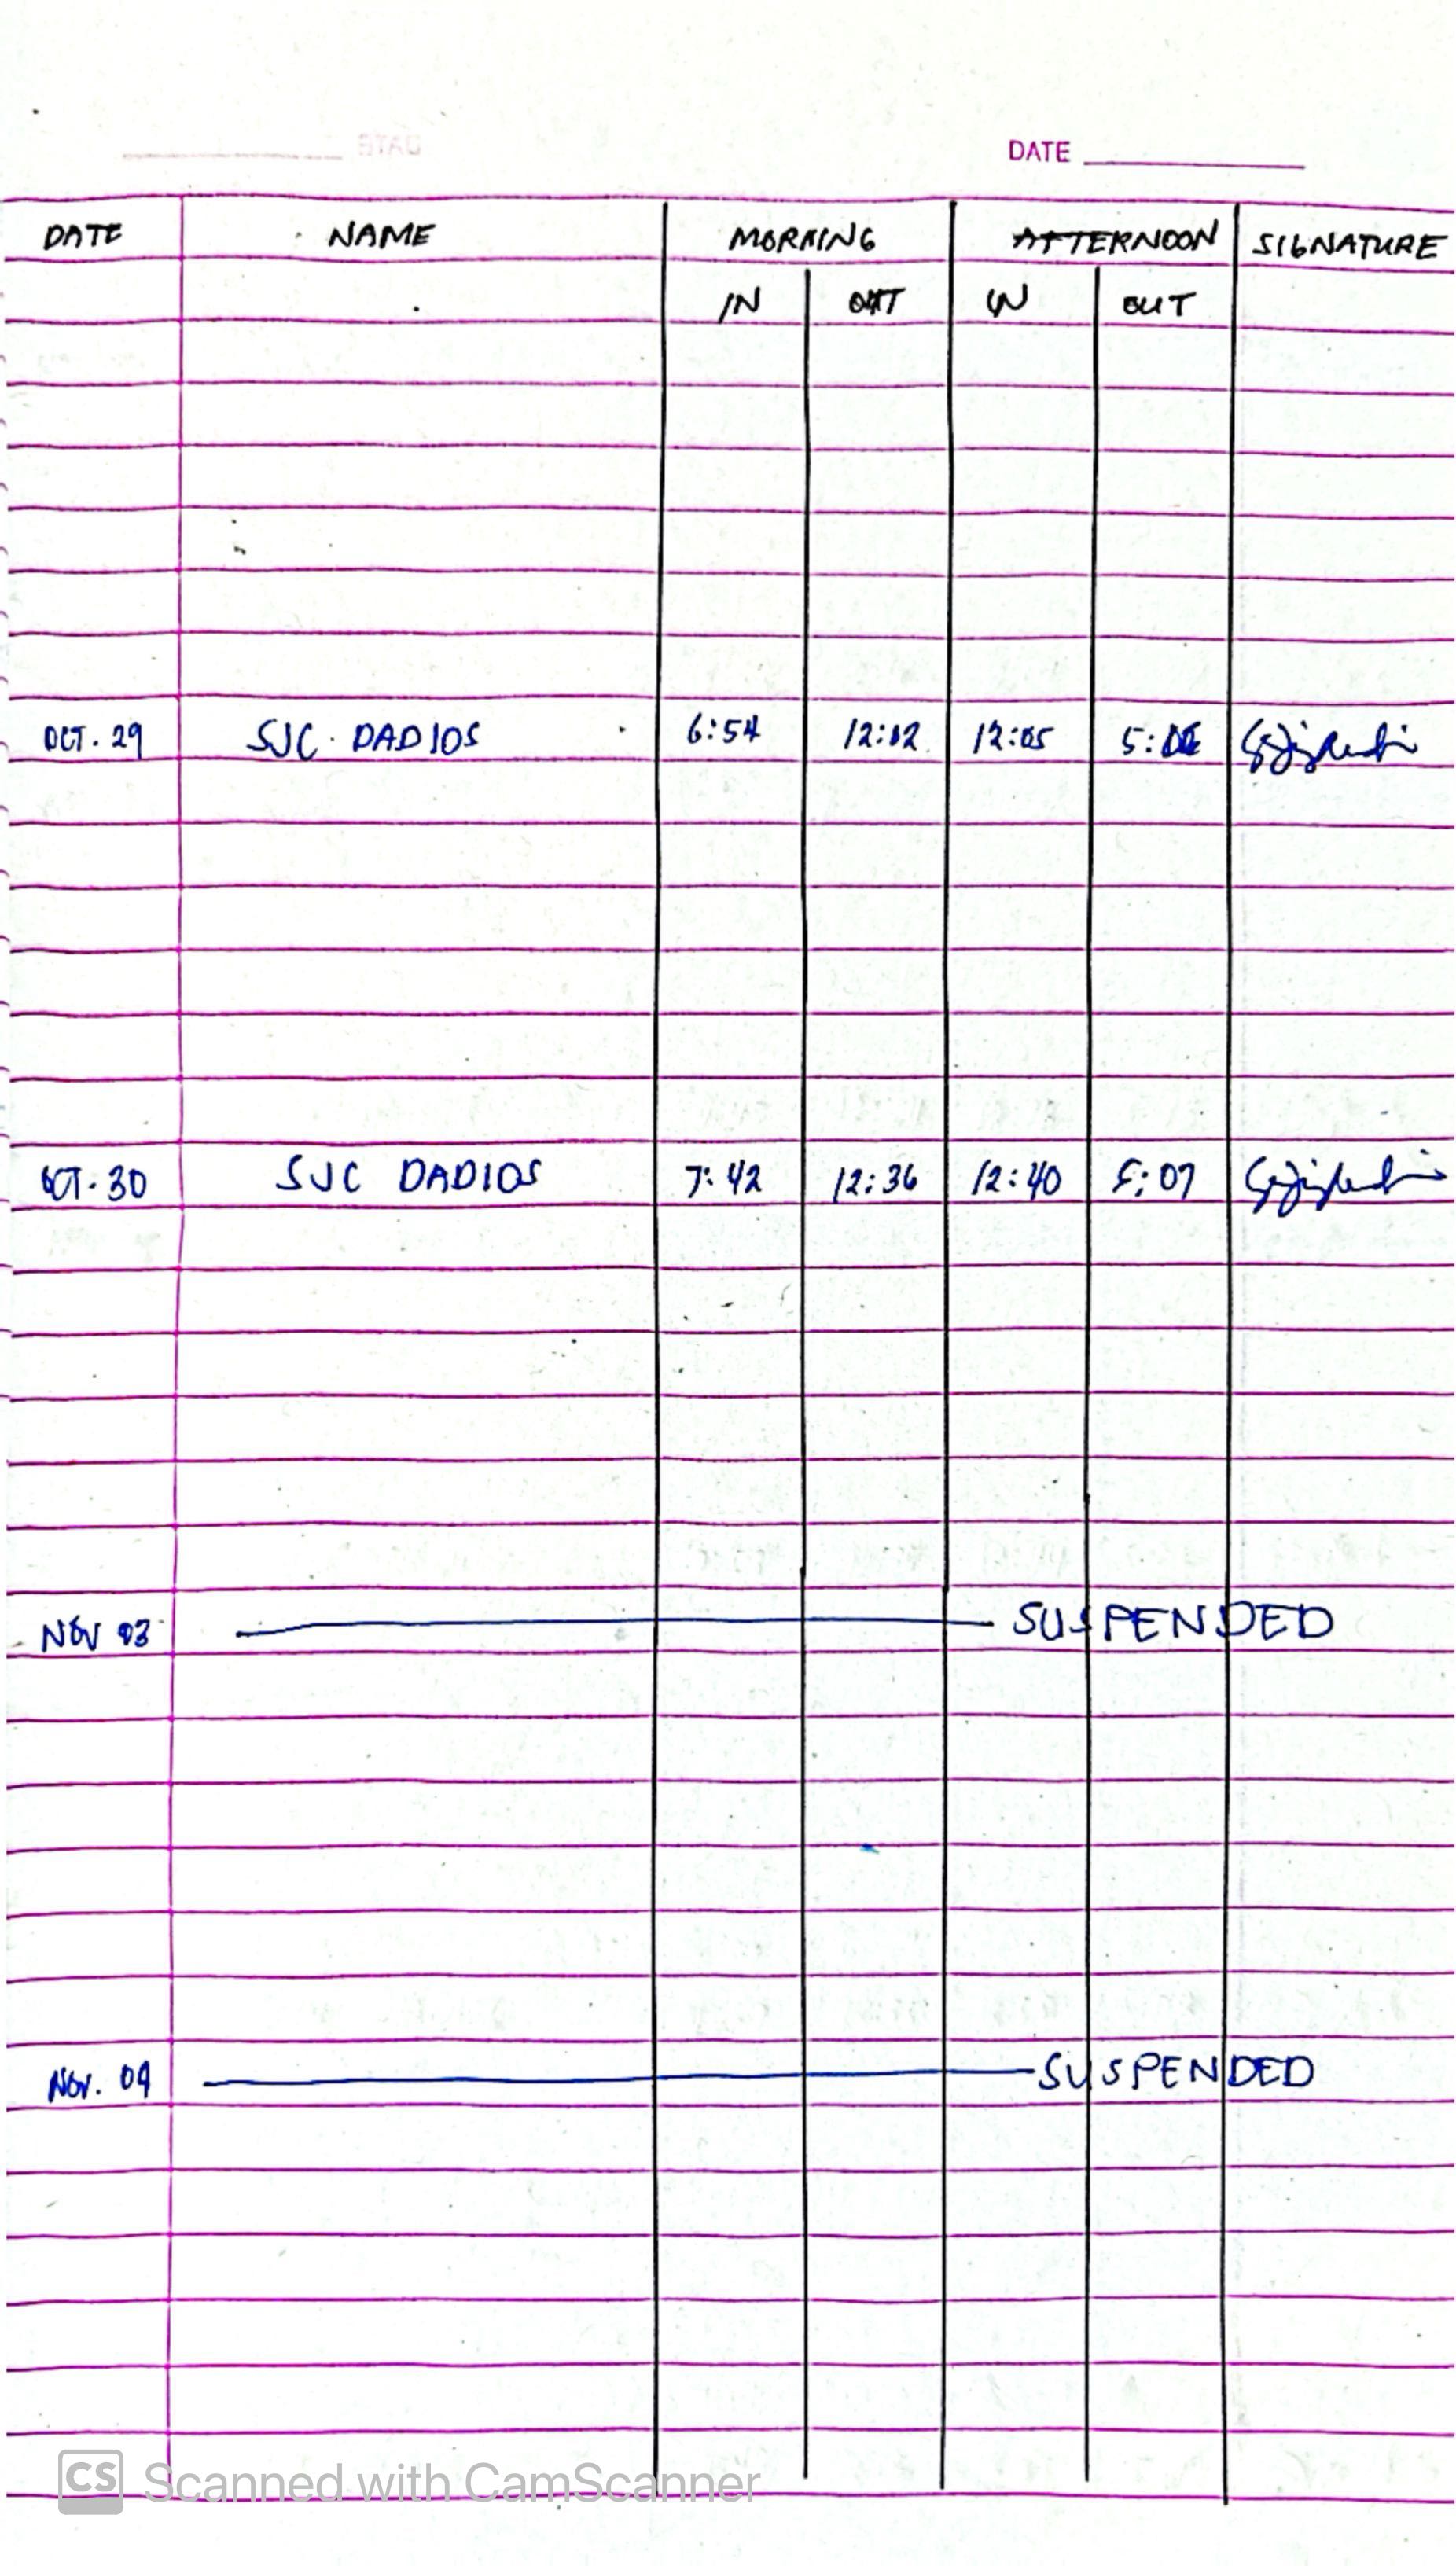 DATE
DATE NAME MORNING AFTERNOON SIGNATURE
IN OUT IN OUT
OCT. 29 SJC DADIOS 6:54 12:02 12:05
OCT. 30 SJC DADIOS 7:42 12:36 12:40 5:07
NOV 03 SUSPENDED
NOV. 04 SUSPENDED
CS Scanned with CamScanner